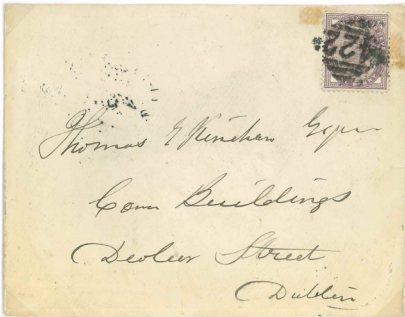 Thomas E Kinehan Esqre
Com Buildings
Dolier Street
Dublin